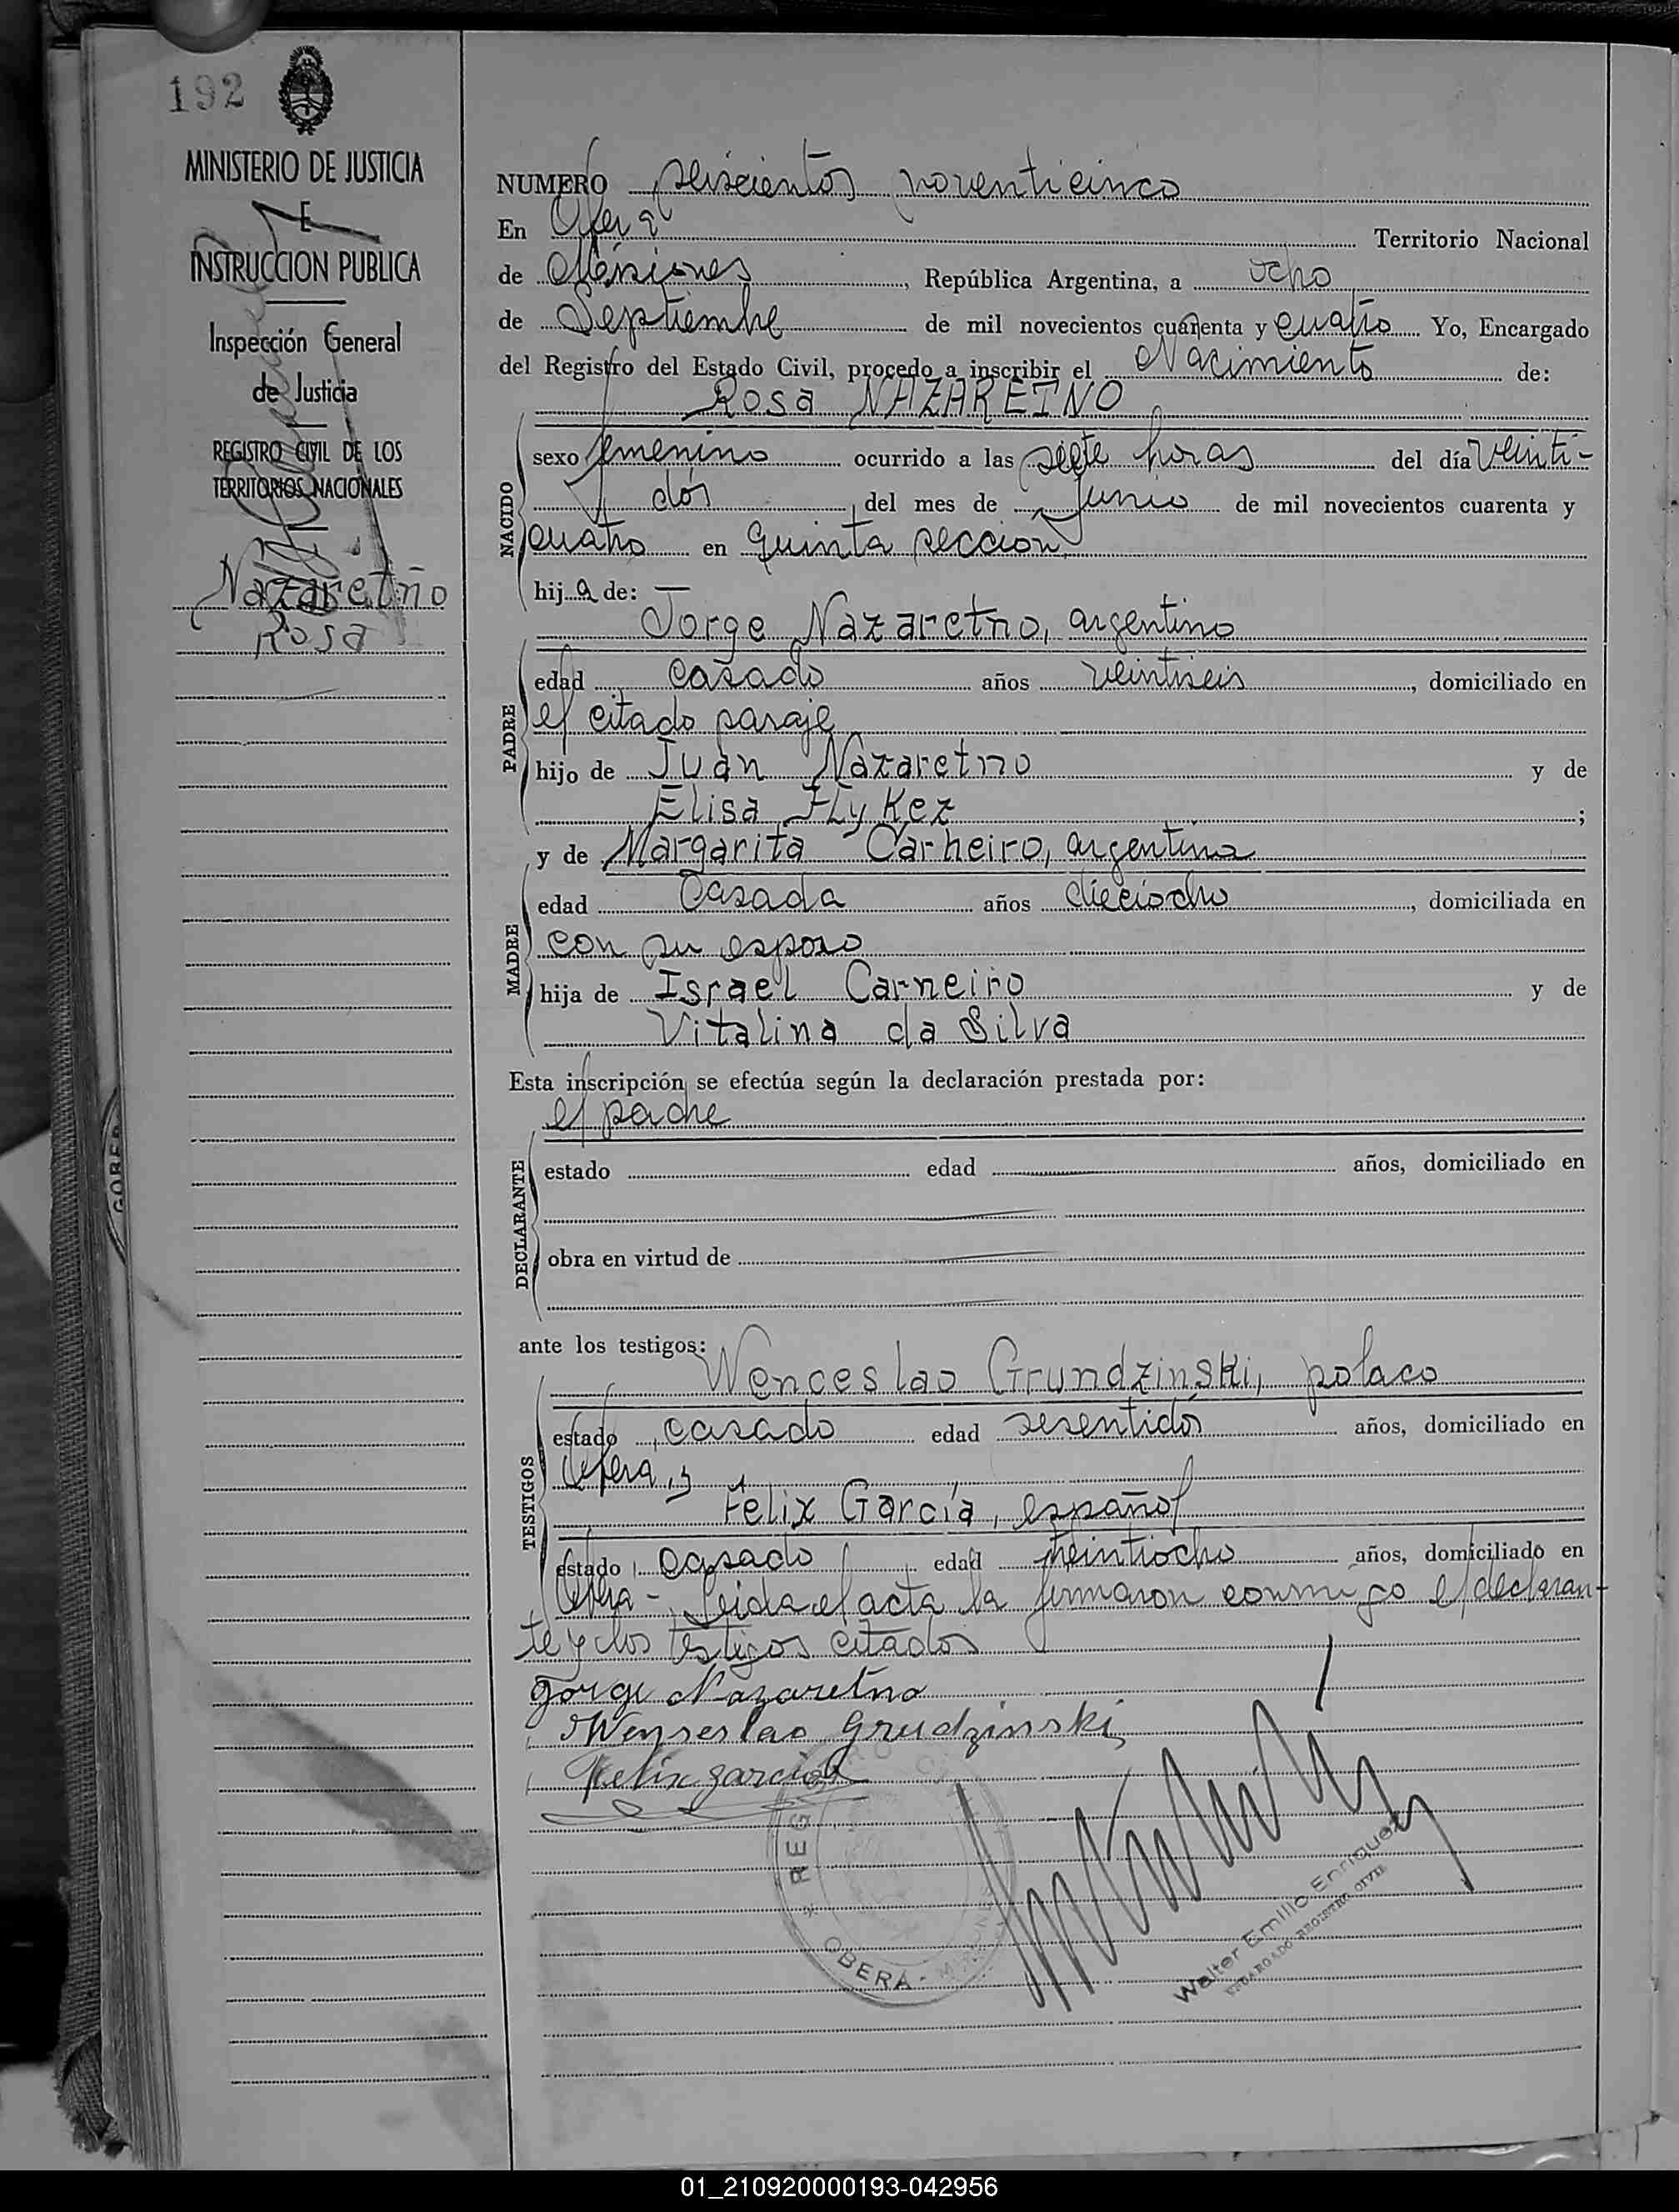 192
MINISTERIO DE JUSTICIA
E
INSTRUCCION PUBLICA
Inspección General
de Justicia
REGISTRO CIVIL DE LOS
TERRITORIOS NACIONALES
Nazaretño
Rosa
NUMERO seiscientos noventicinco
En Oberá Territorio Nacional
de Misiones, República Argentina, a ocho
de Septiembre de mil novecientos cuarenta y cuatro Yo, Encargado
del Registro del Estado Civil, procedo a inscribir el Nacimiento de:
Rosa NAZARETNO
NACIDO
sexo femenino ocurrido a las siete horas del día veinti-
dós del mes de Junio de mil novecientos cuarenta y
cuatro en Quinta seccion
hija de:
Jorge Nazaretno, argentino
PADRE
edad casado años veintiseis, domiciliado en
el citado paraje
hijo de Juan Nazaretno y de
Elisa Flykez;
y de Margarita Carneiro, argentina
MADRE
edad Casada años dieciocho, domiciliada en
con su esposo
hija de Israel Carneiro y de
Vitalina da Silva
Esta inscripción se efectúa según la declaración prestada por:
el padre
DECLARANTE
estado edad años, domiciliado en
obra en virtud de
ante los testigos:
Wenceslao Grundzinski, polaco
TESTIGOS
estado casado edad sesentidós años, domiciliado en
Oberá, y
Felix García, español
estado casado edad treintiocho años, domiciliado en
Oberá - Leida el acta la firmaron conmigo el declaran-
te y los testigos citados
Jorge Nazaretno
Wenseslao Grudzinski
Felix garcia
REG
OBERÁ - MISIONES
Walter Emilio Enriquez
ENCARGADO REGISTRO CIVIL
GOBER
01_210920000193-042956